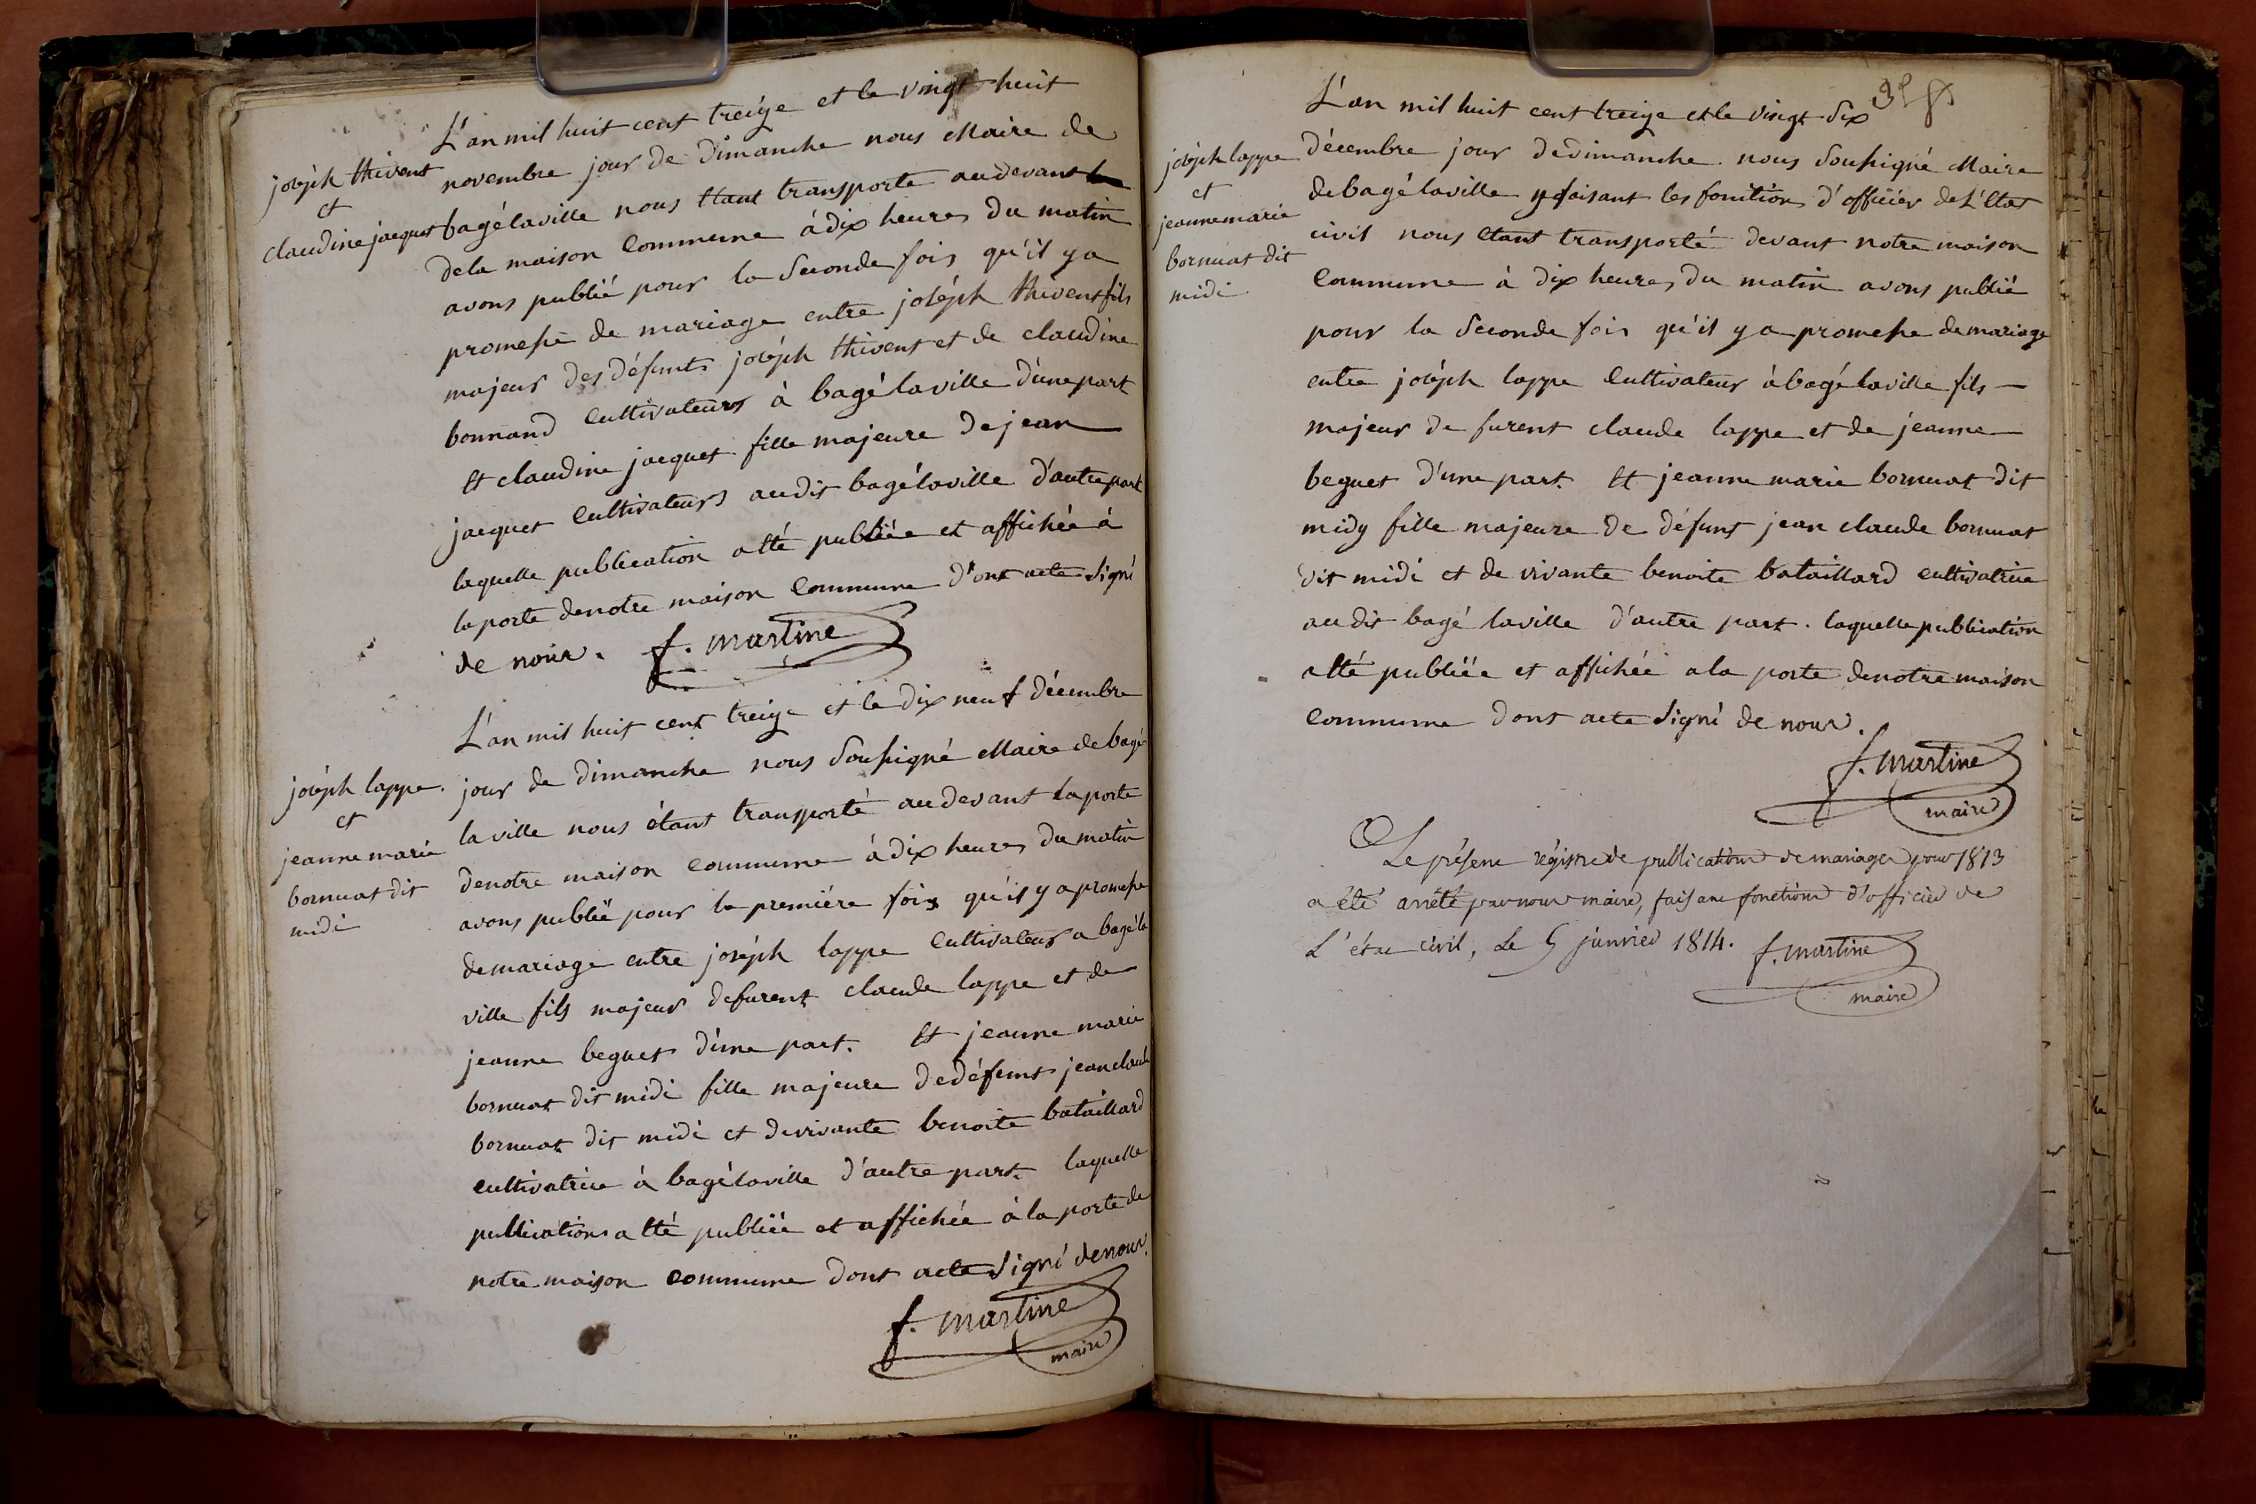 joséph thivent
et
claudine jacquet
L'an mil huit cent treize et le vingt huit
novembre jour de Dimanche nous Maire de
bagélaville nous Etant transporté audevant
dela maison Commune à dix heures du matin
avons publié pour la Seconde fois qu'il y a
promesse de mariage entre joséph thivent fils
majeur des défunts joséph thivent et de claudine
bonnand Cultivateurs à bagélaville d'une part
Et claudine jacquet fille majeure de jean
jacquet Cultivateurs audit bagélaville d'autre part
laquelle publication a Eté publiée et affichée à
la porte denotre maison Commune d'ont acte Signé
de nous. f. martine
joséph lappe.
et
jeanne marie
bornuat dit
midi
L'an mil huit cent treize et le dix neuf décembre
jour de Dimanche nous Soussigné Maire de bagé
la ville nous étant transporté audevant la porte
denotre maison Commune à dix heures du matin
avons publié pour la premiére fois qu'il y a promesse
demariage entre joséph lappe Cultivateur a bagé la
ville fils majeur defurent claude lappe et de
jeanne beguet d'une part. Et jeanne marie
bornuat dit midi fille majeure dedéfunt jean claude
bornuat dit midi et devivante benoite bataillard
cultivatrice à bagélaville d'autre part. laquelle
publication a Eté publiée et affichée à la porte de
notre maison commune dont acte Signé denous.
f. martine
maire
joséph lappe
et
jeanne marie
bornuat dit
midi
L'an mil huit cent treize et le vingt Six
décembre jour dedimanche nous Soussigné Maire
debagélaville y faisant les fonition d'officier de L'Etat
civil nous Etant transporté devant notre maison
Commune à dix heures du matin avons publié
pour la Seconde fois qu'il y a promesse demariage
entre joséph lappe Cultivateur à bagélaville fils
majeur de furent claude lappe et de jeanne
beguet d'une part. Et jeanne marie bornuat dit
midy fille majeure de défunt jean claude bornuat
dit midi et de vivante benoite bataillard cultivatrice
au dit bagé laville d'autre part. laquelle publication
a Eté publiée et affichée a la porte denotre maison
Commune dont acte Signé de nous.
f. martine
maire
Le présent régistre de publication de mariages pour 1813
a été arrêté par nous maire, faisant fonctions d'officier de
L'état civil, Le 5 janvier 1814. f. martine
maire